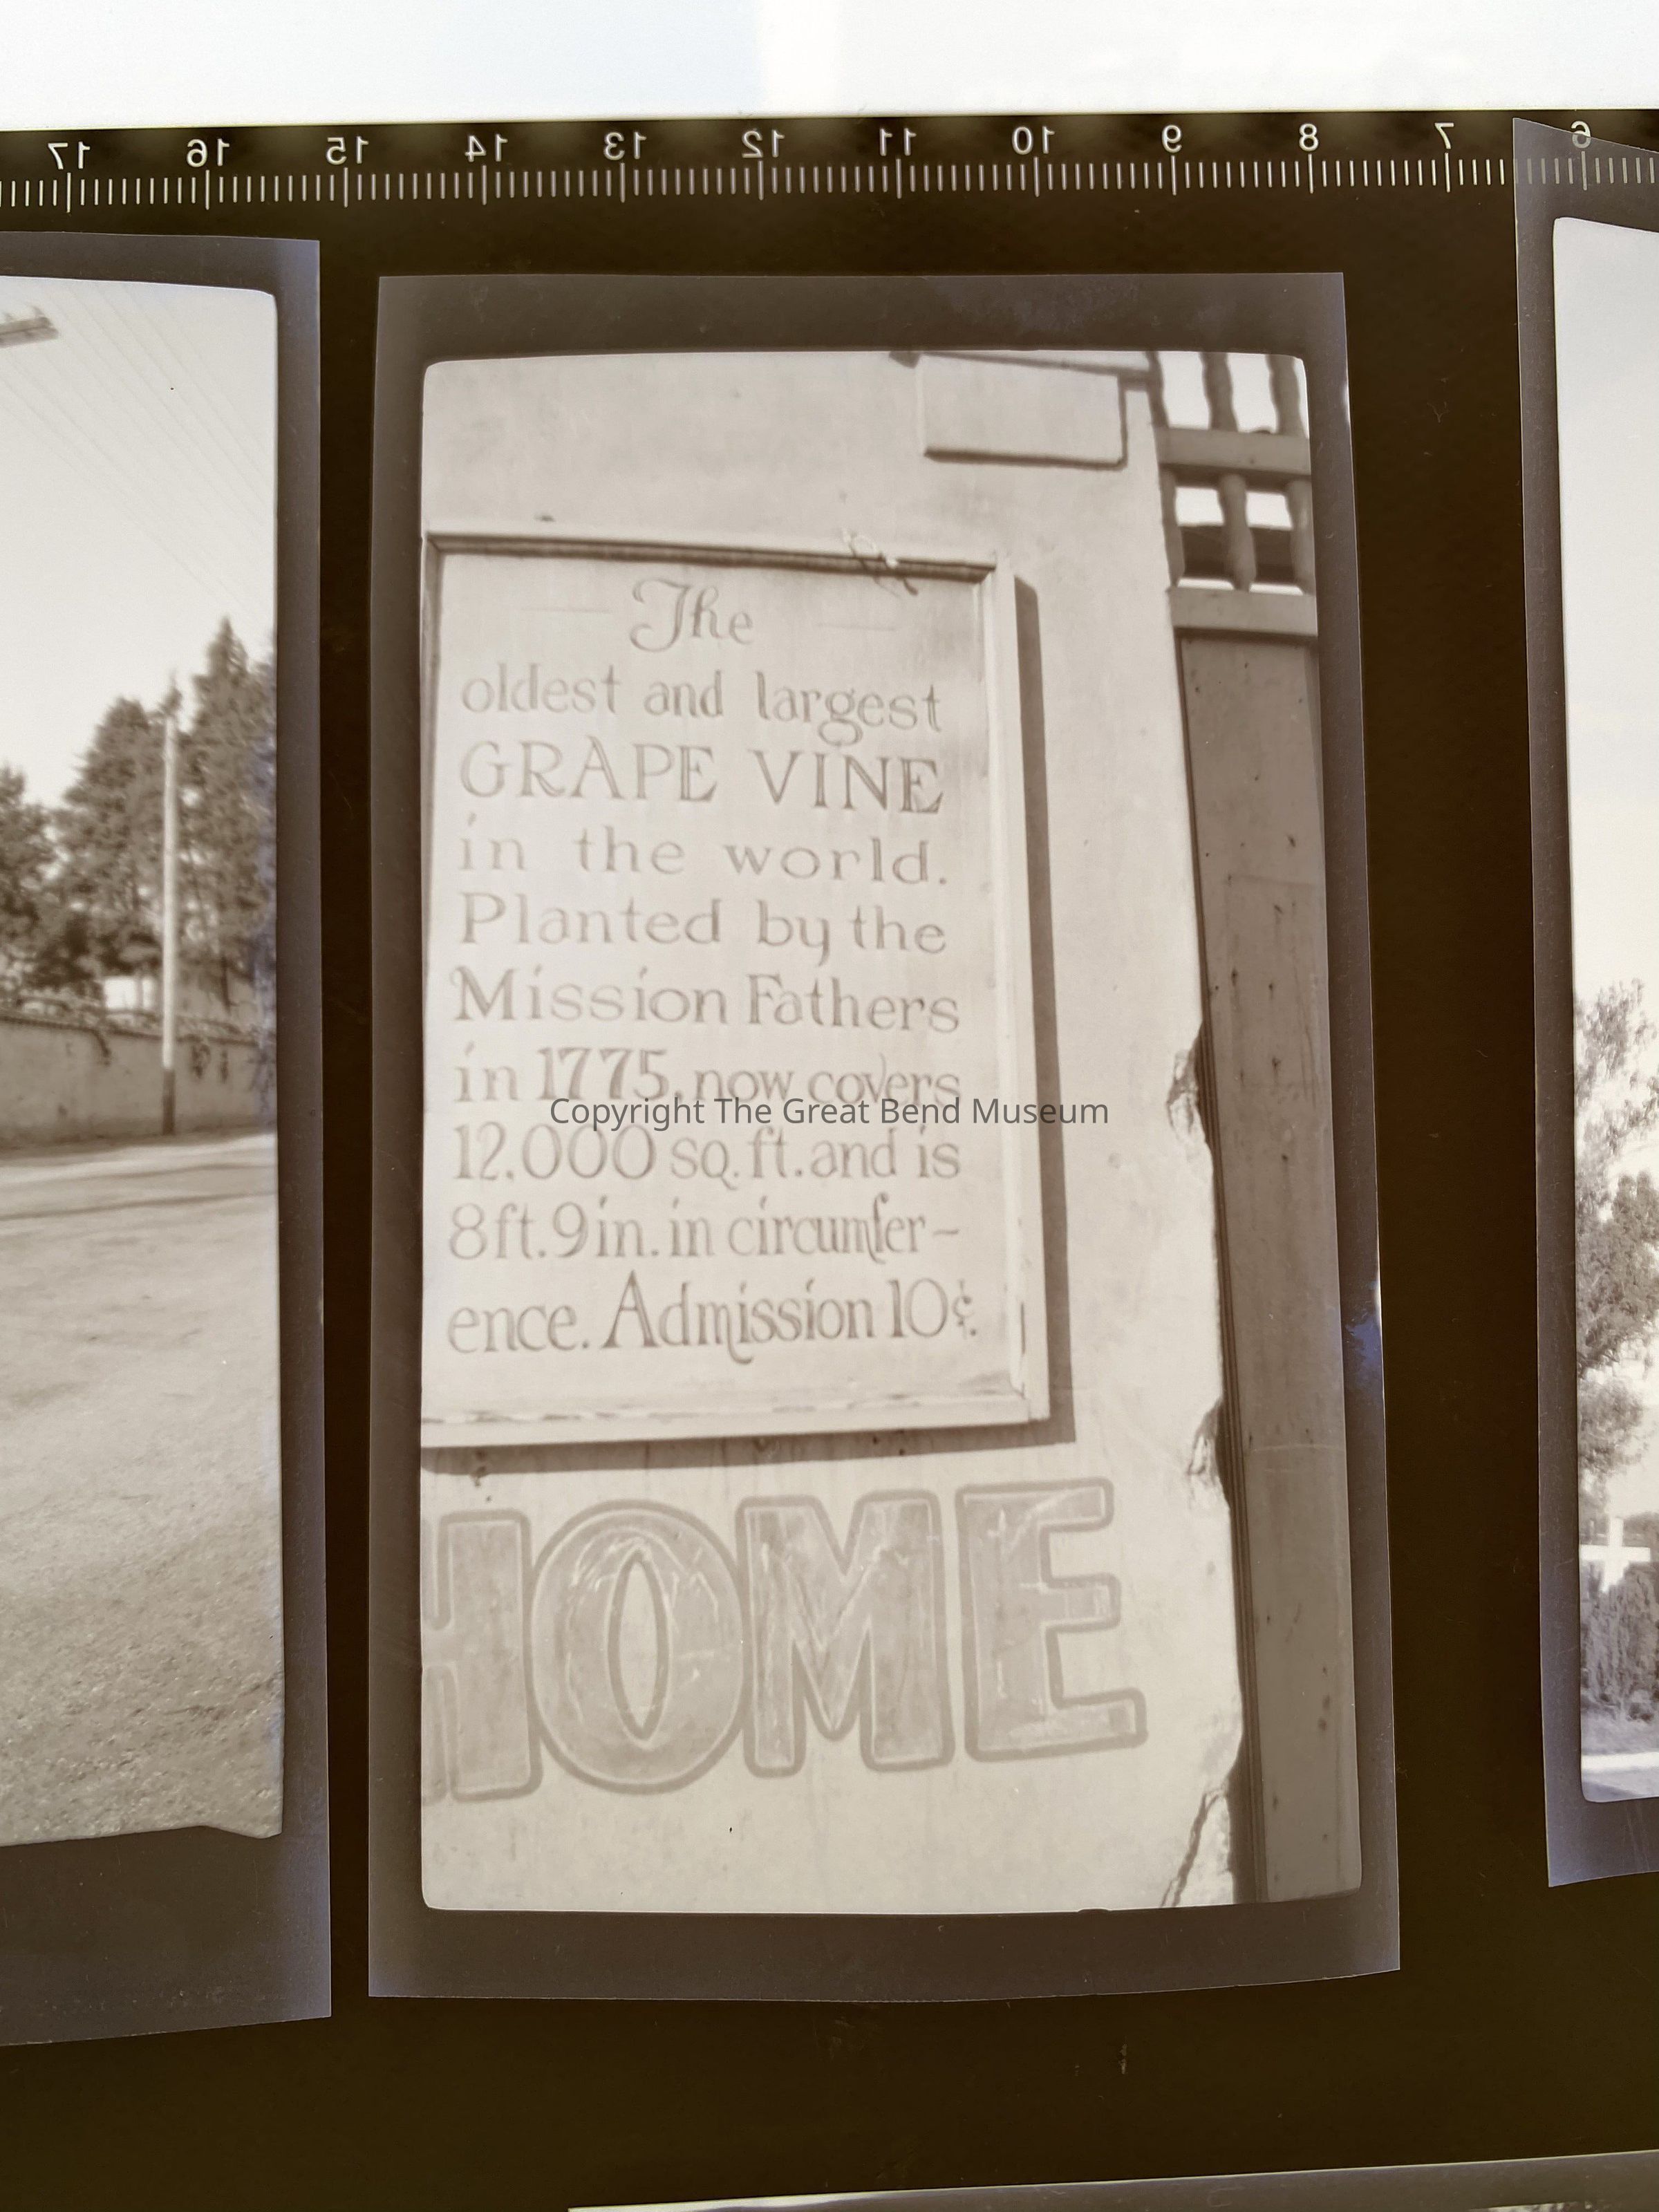 17 16 15 14 13 12 11 10 9 8 7 6
The
oldest and largest
GRAPE VINE
in the world.
Planted by the
Mission Fathers
in 1775, now covers
Copyright The Great Bend Museum
12.000 sq. ft. and is
8 ft. 9 in. in circumfer-
ence. Admission 10¢.
HOME